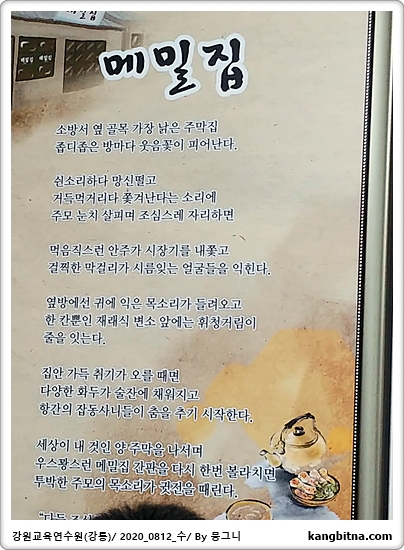 메밀집
메밀집
소방서 옆 골목 가장 낡은 주막집
좁디좁은 방마다 웃음꽃이 피어난다.
쉰소리하다 망신떨고
거득먹거리다 쫓겨난다는 소리에
주모 눈치 살피며 조심스레 자리하면
먹음직스런 안주가 시장기를 내쫓고
걸쩍한 막걸리가 시름잊는 얼굴들을 익힌다.
옆방에선 귀에 익은 목소리가 들려오고
한 칸뿐인 재래식 변소 앞에는 휘청거림이
줄을 잇는다.
집안 가득 취기가 오를 때면
다양한 화두가 술잔에 채워지고
항간의 잡동사니들이 춤을 추기 시작한다.
세상이 내 것인 양 주막을 나서며
우스꽝스런 메밀집 간판을 다시 한번 볼라치면
투박한 주모의 목소리가 귓전을 때린다.
강원교육연수원(강릉)/ 2020_0812_수/ By 몽그니
kangbitna.com